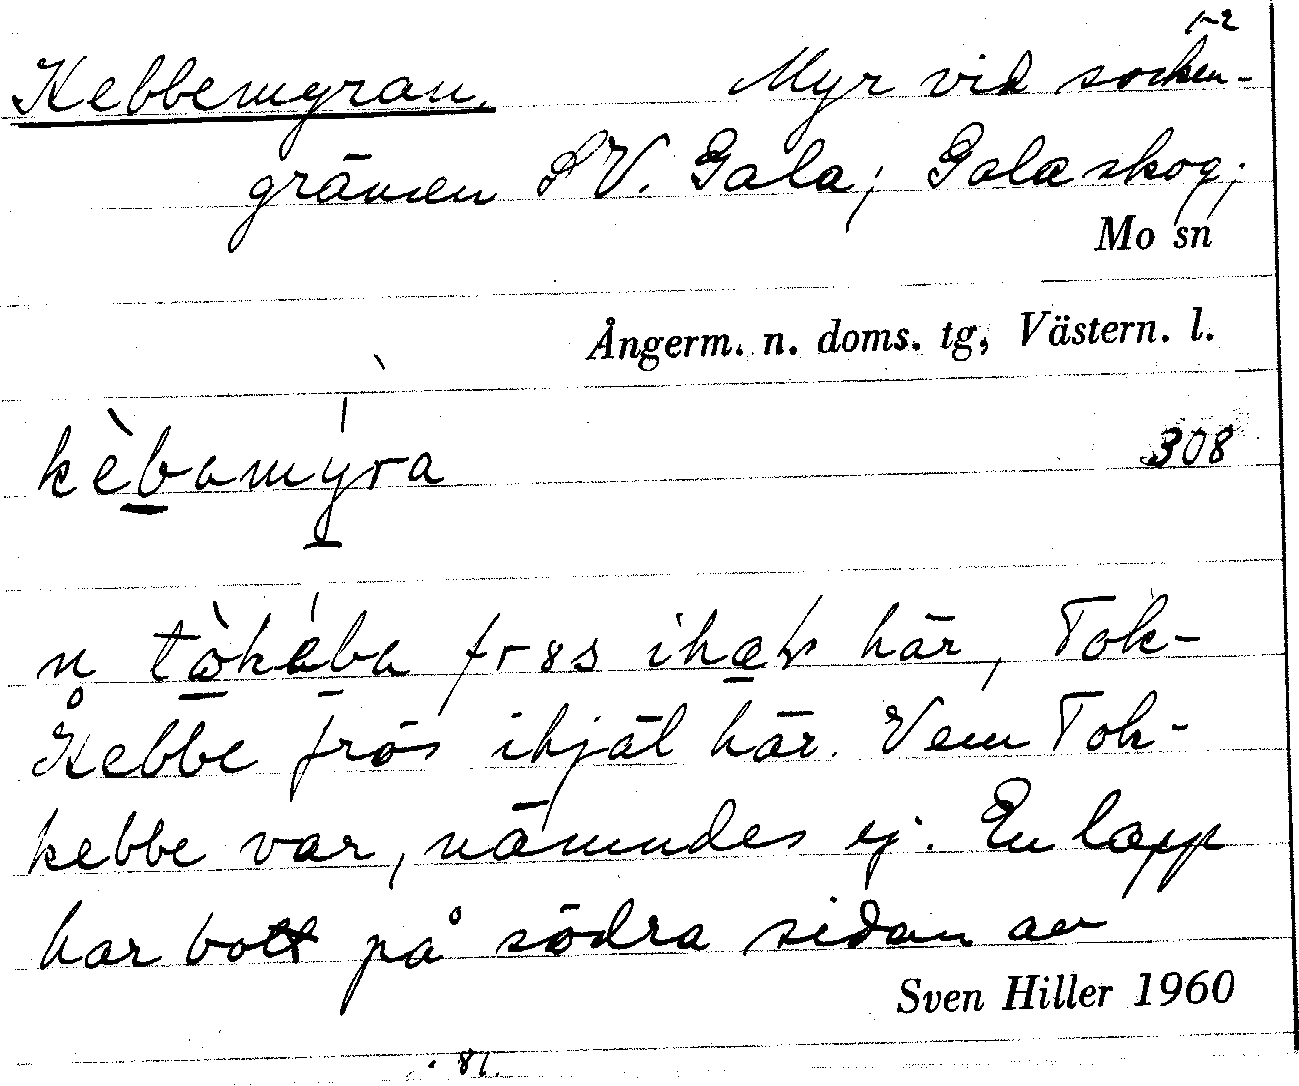 1-2
Kebbemyran. Myr vid socken-
gränsen SV. Gala; Gala skog;
Mo sn
Ångerm. n. doms. tg, Västern. l.
kèbamýra 308
n tòkába frøs ihæḷ här, Tok-
Kebbe frös ihjäl här. Vem Tok-
kebbe var, nämndes ej. En lapp
har bott på södra sidan av
Sven Hiller 1960
81.